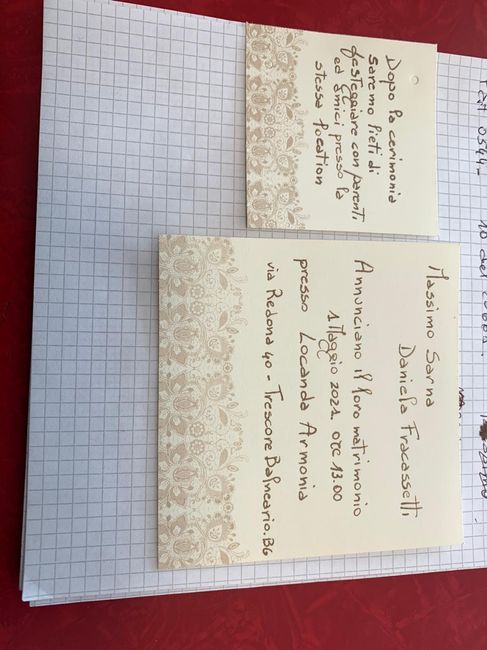 Massimo Sarna
Daniela Fracassetti
Annunciano il loro matrimonio
1 Maggio 2021 ore 13.00
presso Locanda Armonia
via Redona 40 - Trescore Balneario.BG
Dopo la cerimonia
saremo lieti di
festeggiare con parenti
ed amici presso la
stessa location